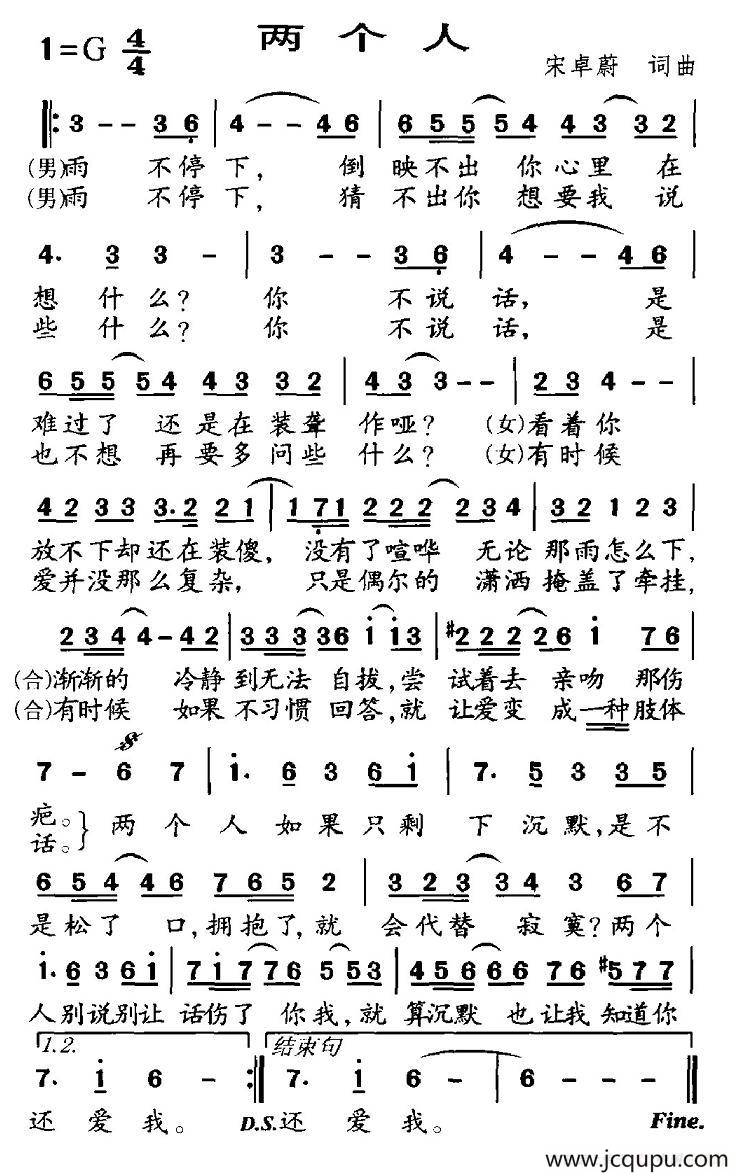 1=G 4/4
两个人
宋卓蔚 词曲
3 - - 3 6 | 4 - - 4 6 | 6 5 5 5 4 4 3 3 2 |
(男)雨 不停下, 倒映不出你心里在
(男)雨 不停下, 猜不出你想要我说
4. 3 3 - | 3 - - 3 6 | 4 - - 4 6 |
想什么? 你 不说话, 是
些什么? 你 不说话, 是
6 5 5 5 4 4 3 3 2 | 4 3 3 - - | 2 3 4 - - |
难过了 还是在装聋 作哑? (女)看着你
也不想 再要多问些 什么? (女)有时候
4 2 3 3 3. 2 2 1 | 1 7 1 2 2 2 2 3 4 | 3 2 1 2 3 |
放不下却还在装傻, 没有了喧哗 无论那雨怎么下,
爱并没那么复杂, 只是偶尔的 潇洒掩盖了牵挂,
2 3 4 4 - 4 2 | 3 3 3 3 3 6 i i i 3 | #2 2 2 2 2 6 i 7 6 |
(合)渐渐的 冷静到无法自拔,尝试着去亲吻那伤
(合)有时候 如果不习惯回答,就让爱变成一种肢体
7 - 6 7 | i. 6 3 6 i | 7. 5 3 3 5 |
疤。} 两个人如果只剩下沉默,是不
话。
6 5 4 4 6 7 6 5 2 | 3 2 3 3 4 3 6 7 |
是松了口,拥抱了,就会代替寂寞?两个
i. 6 3 6 i | 7 i 7 7 6 5 5 3 | 4 5 6 6 6 7 6 #5 7 7 |
人别说别让话伤了你我,就算沉默也让我知道你
1.2. 结束句
7. i 6 - :| 7. i 6 - | 6 - - - ‖
还爱我。 D.S.还爱我。 Fine.
www.jcqupu.com